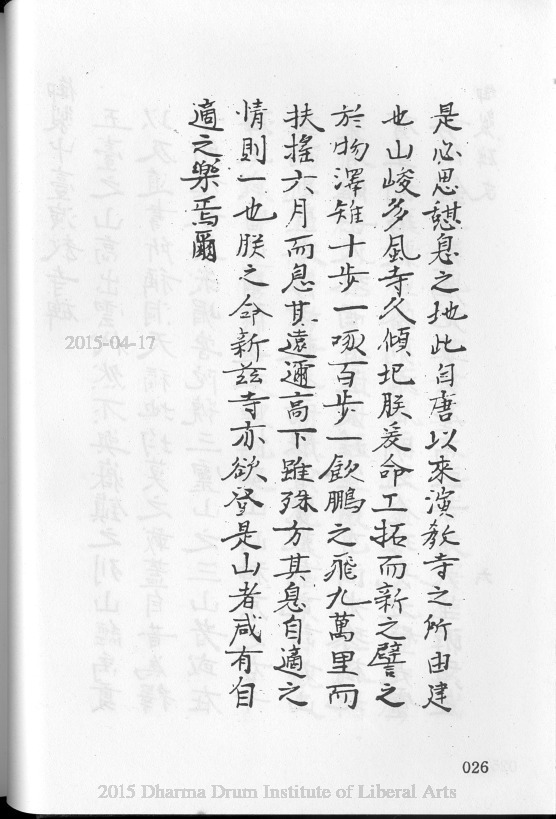 是必思憇息之地此自唐以來演教寺之所由建
也山峻多風寺久傾圮朕爰命工拓而新之譬之
於物澤雉十步一啄百步一飲鵬之飛九萬里而
扶搖六月而息其遠邇高下雖殊方其息自適之
情則一也朕之命新茲寺亦欲登是山者咸有自
適之樂焉爾
2015-04-17
026
2015 Dharma Drum Institute of Liberal Arts